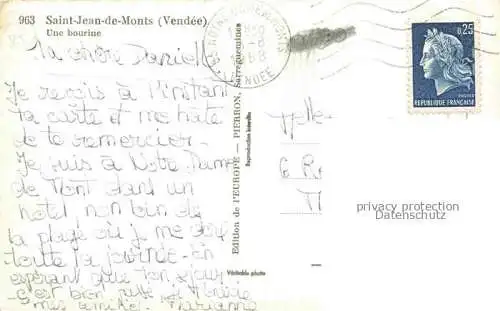 963 Saint-Jean-de-Monts (Vendée)
Une bourine
Ma chère Danielle
Je reçois à l'instant
ta carte et me hâte
de te remercier.
Je suis à Notre Dame
de Mont dans un
hotel non loin de
la plage où je me dore
toute la journée. En
espérant que ton séjour
c'est bien passé
mes amitiés. Marianne
Edition de l'EUROPE — PIERRON, Sarreguemines
Reproduction interdite
Véritable photo
VENDÉE
0,25
REPUBLIQUE FRANÇAISE
privacy protection
Datenschutz